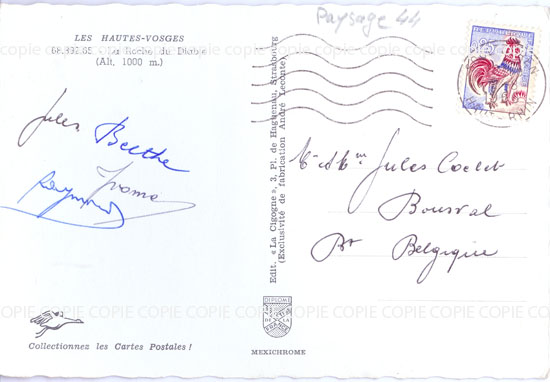 Paysage 44
LES HAUTES-VOSGES
La Roche du Diable
(Alt. 1000 m.)
Jules Berthe
Yvonne
Raymond
Edit. « La Cigogne », 3, Pl. de Haguenau, Strasbourg
(Exclusivité de fabrication André Leconte)
Mr et Mme Jules
Bousval
Bt Belgique
COPIE COPIE COPIE COPIE COPIE COPIE COPIE COPIE COPIE
DIPLOME
FRANCE
Collectionnez les Cartes Postales !
MEXICHROME